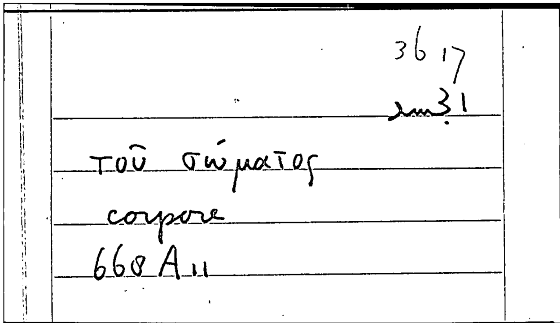 36 17
31
τοῦ σώματος
corpore
668 A 11